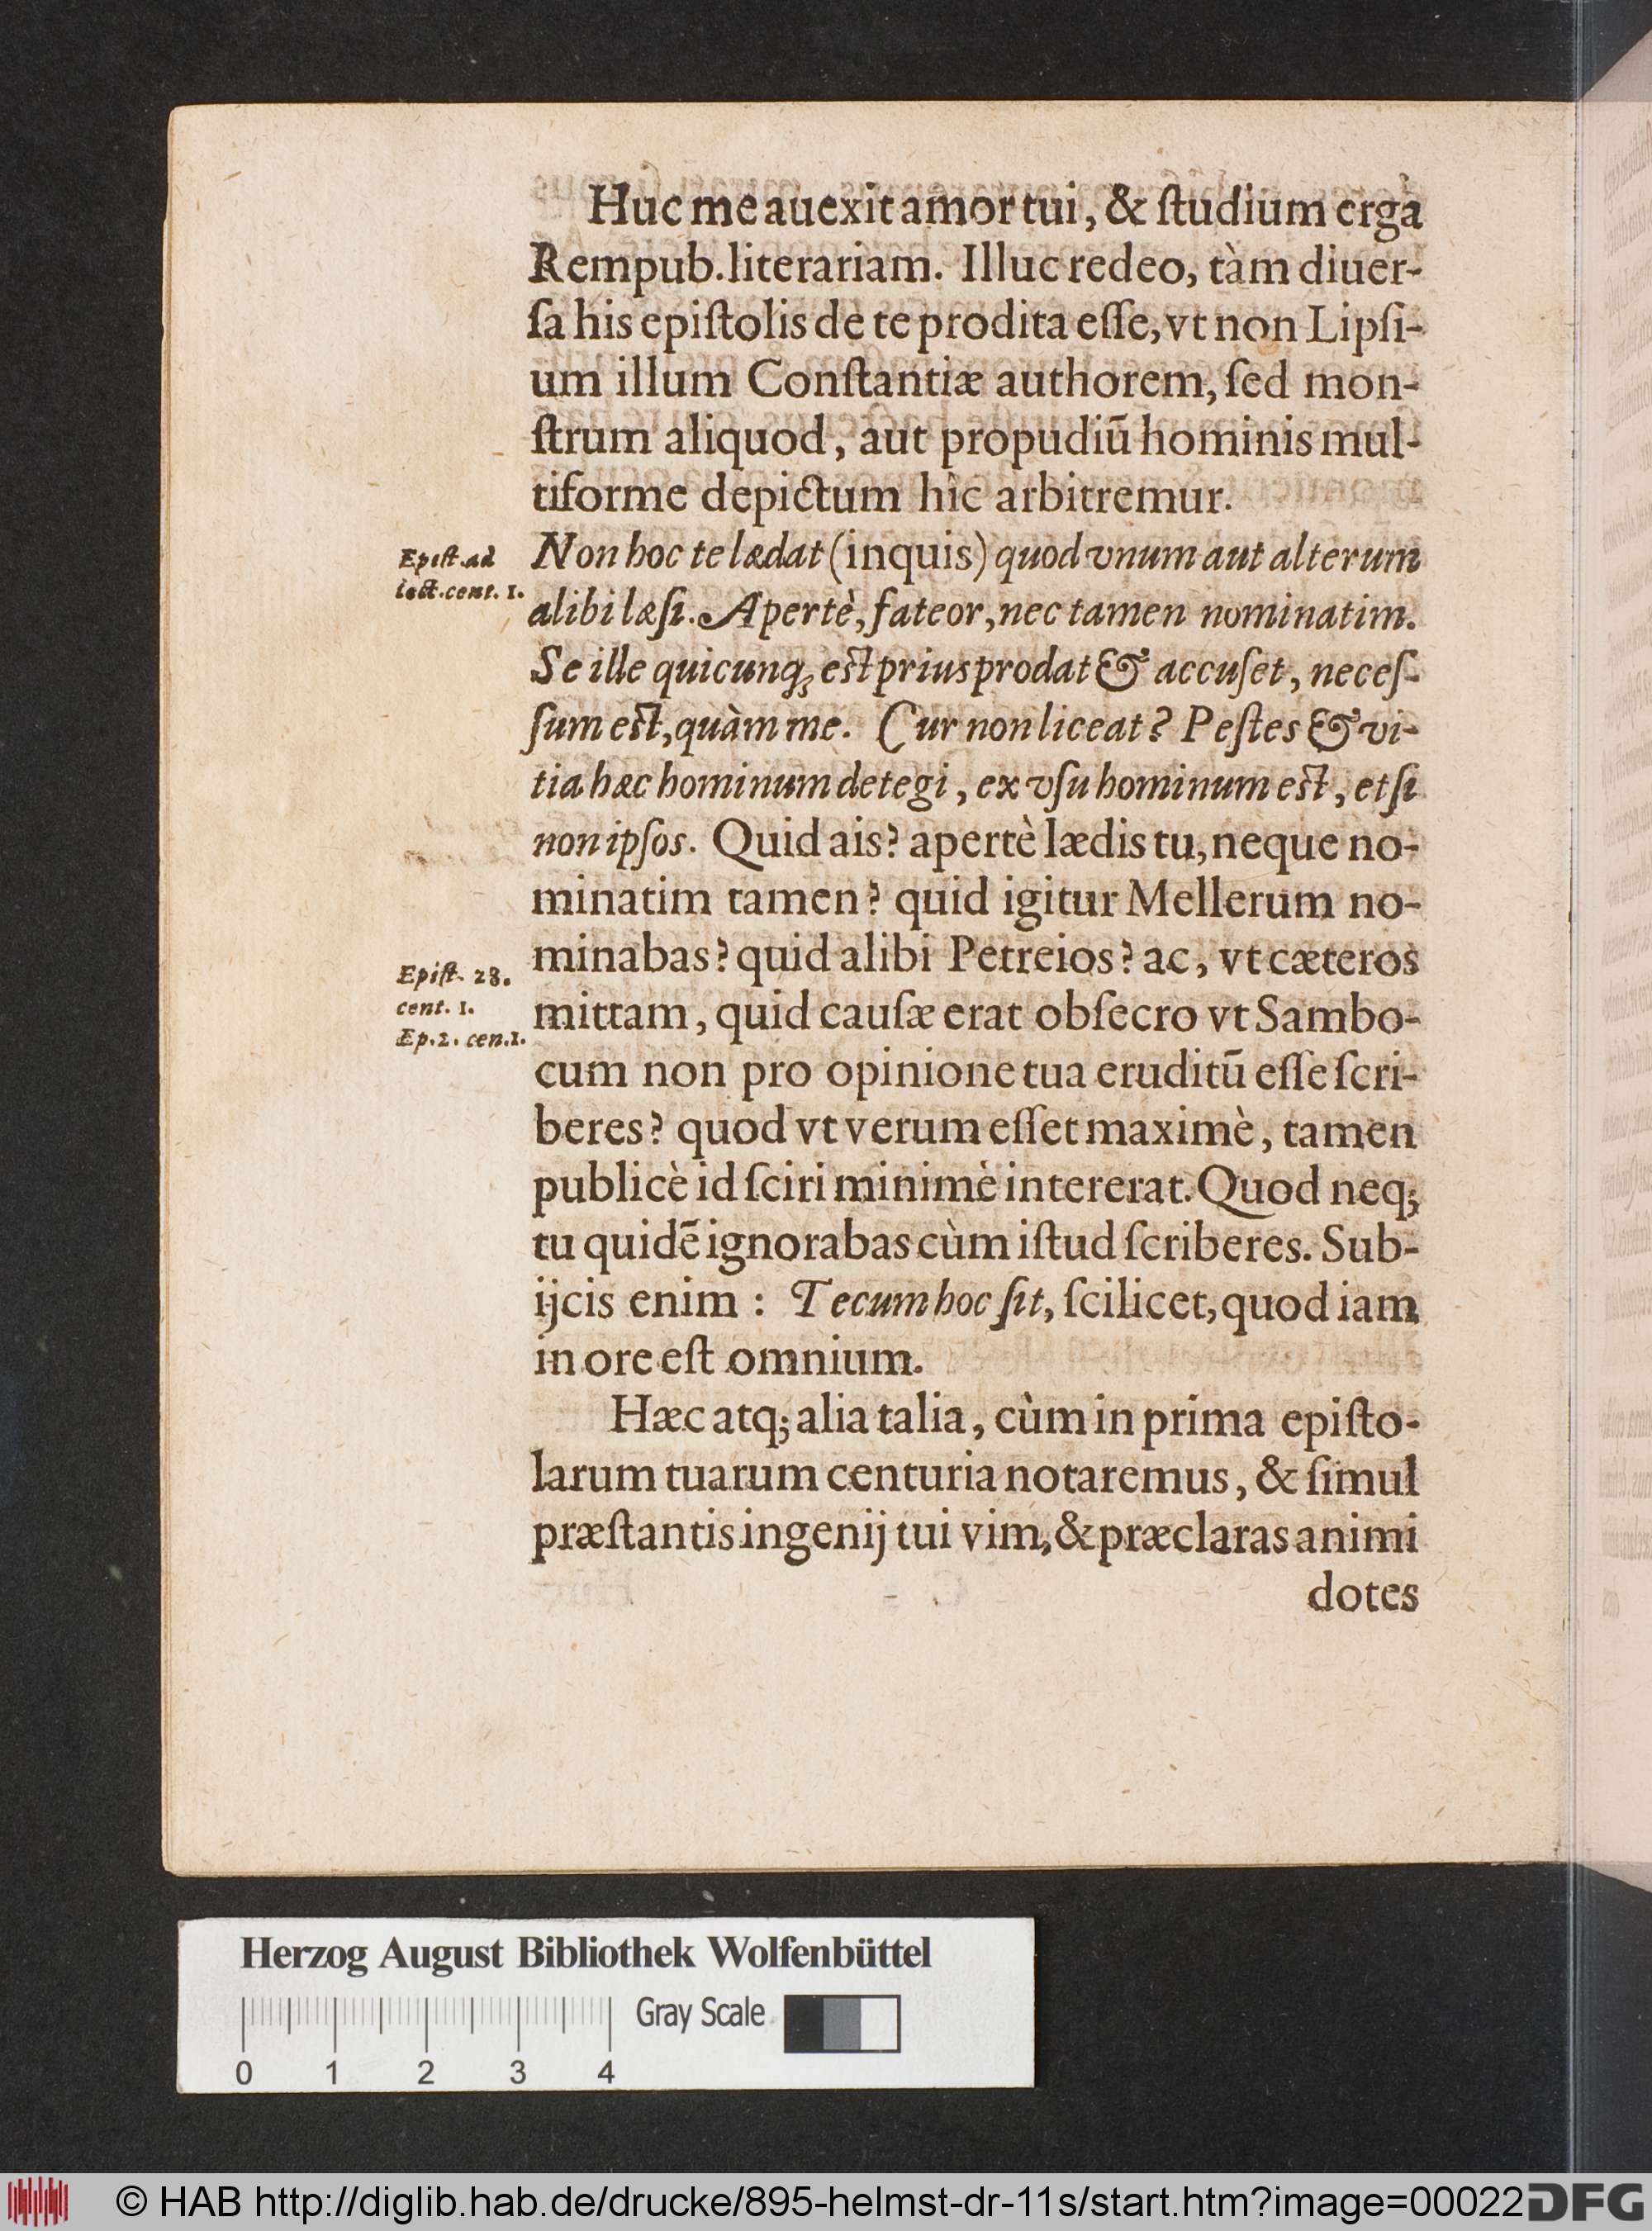 Huc me auexit amor tui, & ſtudium erga
Rempub. literariam. Illuc redeo, tàm diuer-
ſa his epiſtolis de te prodita eſſe, vt non Lipſi-
um illum Conſtantiæ authorem, ſed mon-
ſtrum aliquod, aut propudiū hominis mul-
tiforme depictum hîc arbitremur.
Epiſt. ad
lect. cent. 1.
Non hoc te lædat (inquis) quod vnum aut alterum
alibi læſi. Apertè, fateor, nec tamen nominatim.
Se ille quicunq; eſt prius prodat & accuſet, neceſ-
ſum eſt, quàm me. Cur non liceat? Peſtes & vi-
tia hæc hominum detegi, ex vſu hominum eſt, etſi
non ipſos. Quid ais? apertè lædis tu, neque no-
minatim tamen? quid igitur Mellerum no-
minabas? quid alibi Petreios? ac, vt cæteros
Epiſt. 28.
cent. 1.
Ep. 2. cen. 1.
mittam, quid cauſæ erat obſecro vt Sambo-
cum non pro opinione tua eruditū eſſe ſcri-
beres? quod vt verum eſſet maximè, tamen
publicè id ſciri minimè intererat. Quod neq;
tu quidē ignorabas cùm iſtud ſcriberes. Sub-
ijcis enim : Tecum hoc ſit, ſcilicet, quod iam
in ore eſt omnium.
Hæc atq; alia talia, cùm in prima epiſto-
larum tuarum centuria notaremus, & ſimul
præſtantis ingenij tui vim, & præclaras animi
dotes
Herzog August Bibliothek Wolfenbüttel
Gray Scale
0 1 2 3 4
© HAB http://diglib.hab.de/drucke/895-helmst-dr-11s/start.htm?image=00022
DFG